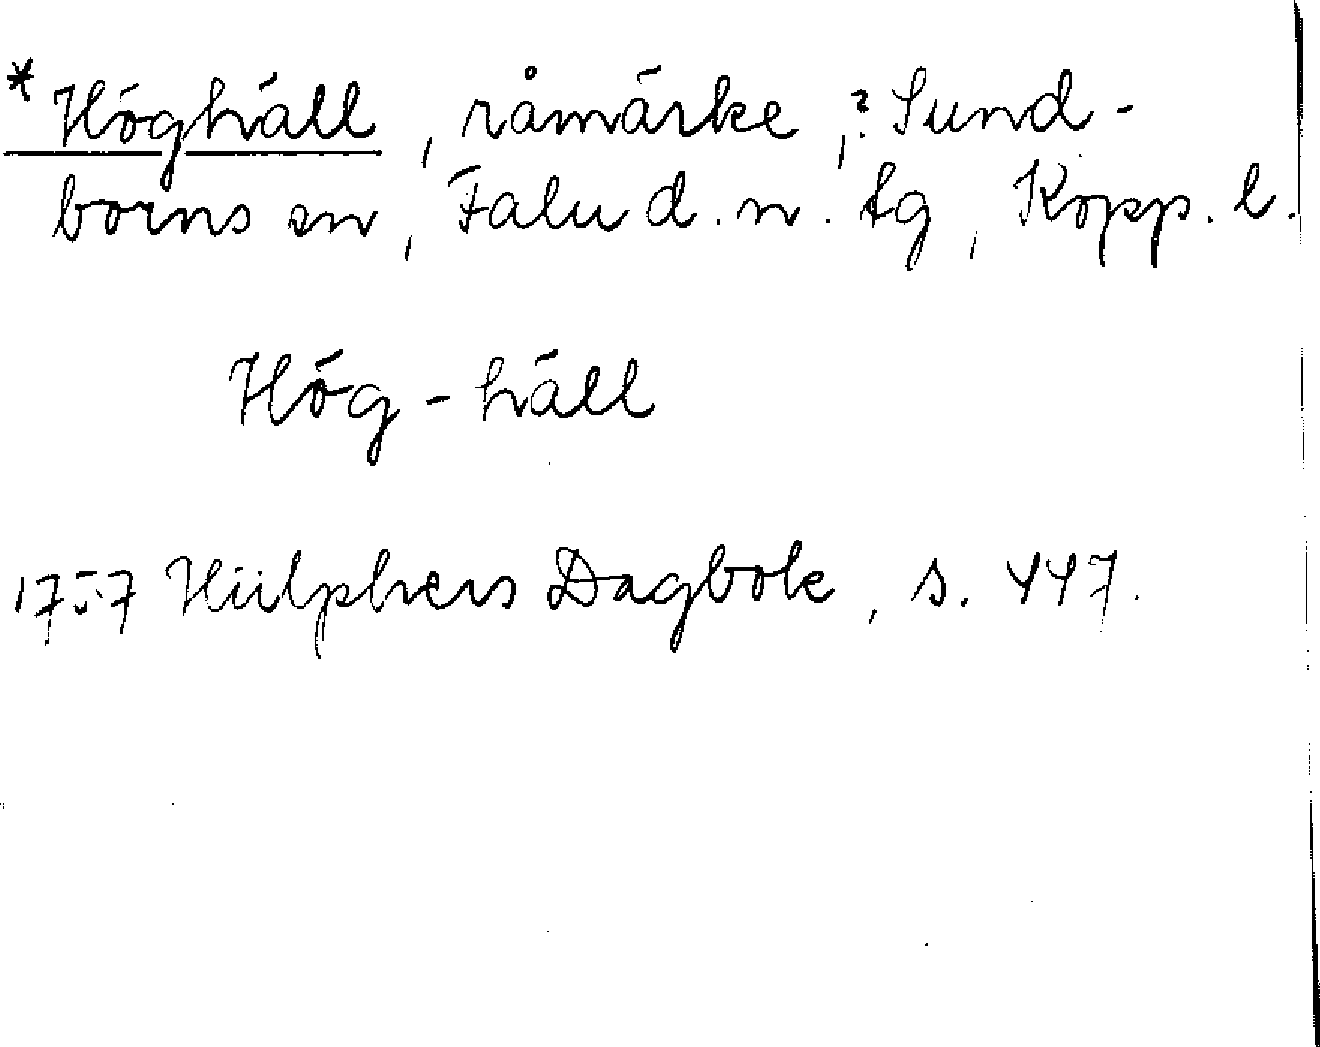 *Höghäll, råmärke, ? Sund-
borns sn, Falu d. n. tg, Kopp. l.
Hög-häll
1757 Hülphers Dagbok, s. 447.